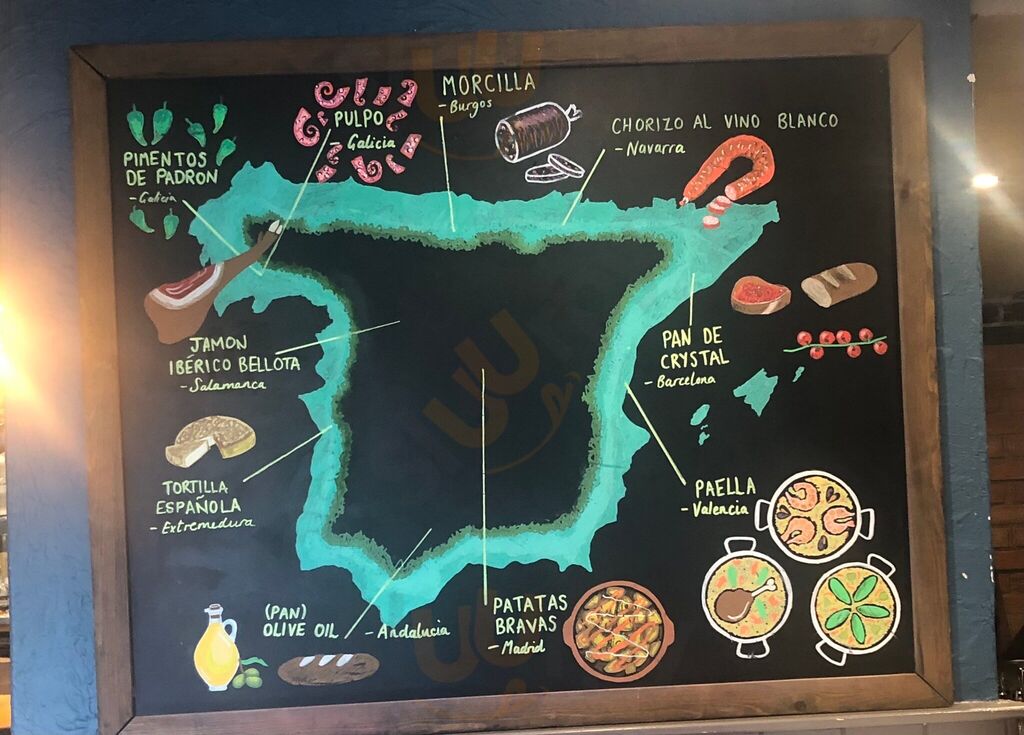 MORCILLA
- Burgos
PULPO
- Galicia
CHORIZO AL VINO BLANCO
- Navarra
PIMENTOS
DE PADRON
- Galicia
JAMON
IBÉRICO BELLOTA
- Salamanca
PAN DE
CRYSTAL
- Barcelona
TORTILLA
ESPAÑOLA
- Extremedura
PAELLA
- Valencia
(PAN)
OLIVE OIL
- Andalucia
PATATAS
BRAVAS
- Madrid